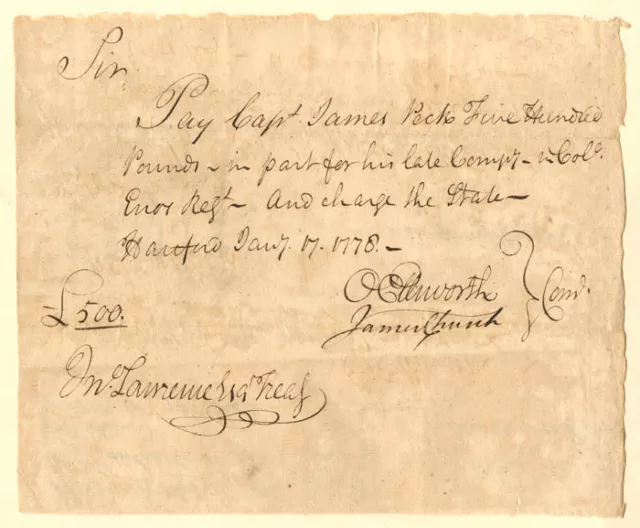 Sir
Pay Capt. James Peck Five Hundred
Pounds - in part for his late Compy - in Colo.
Enos Regt - And charge the State -
Hartford Jany. 17. 1778. -
O Ellsworth
James Church } Com.
£500.
Jno. Lawrence Esqr Treas